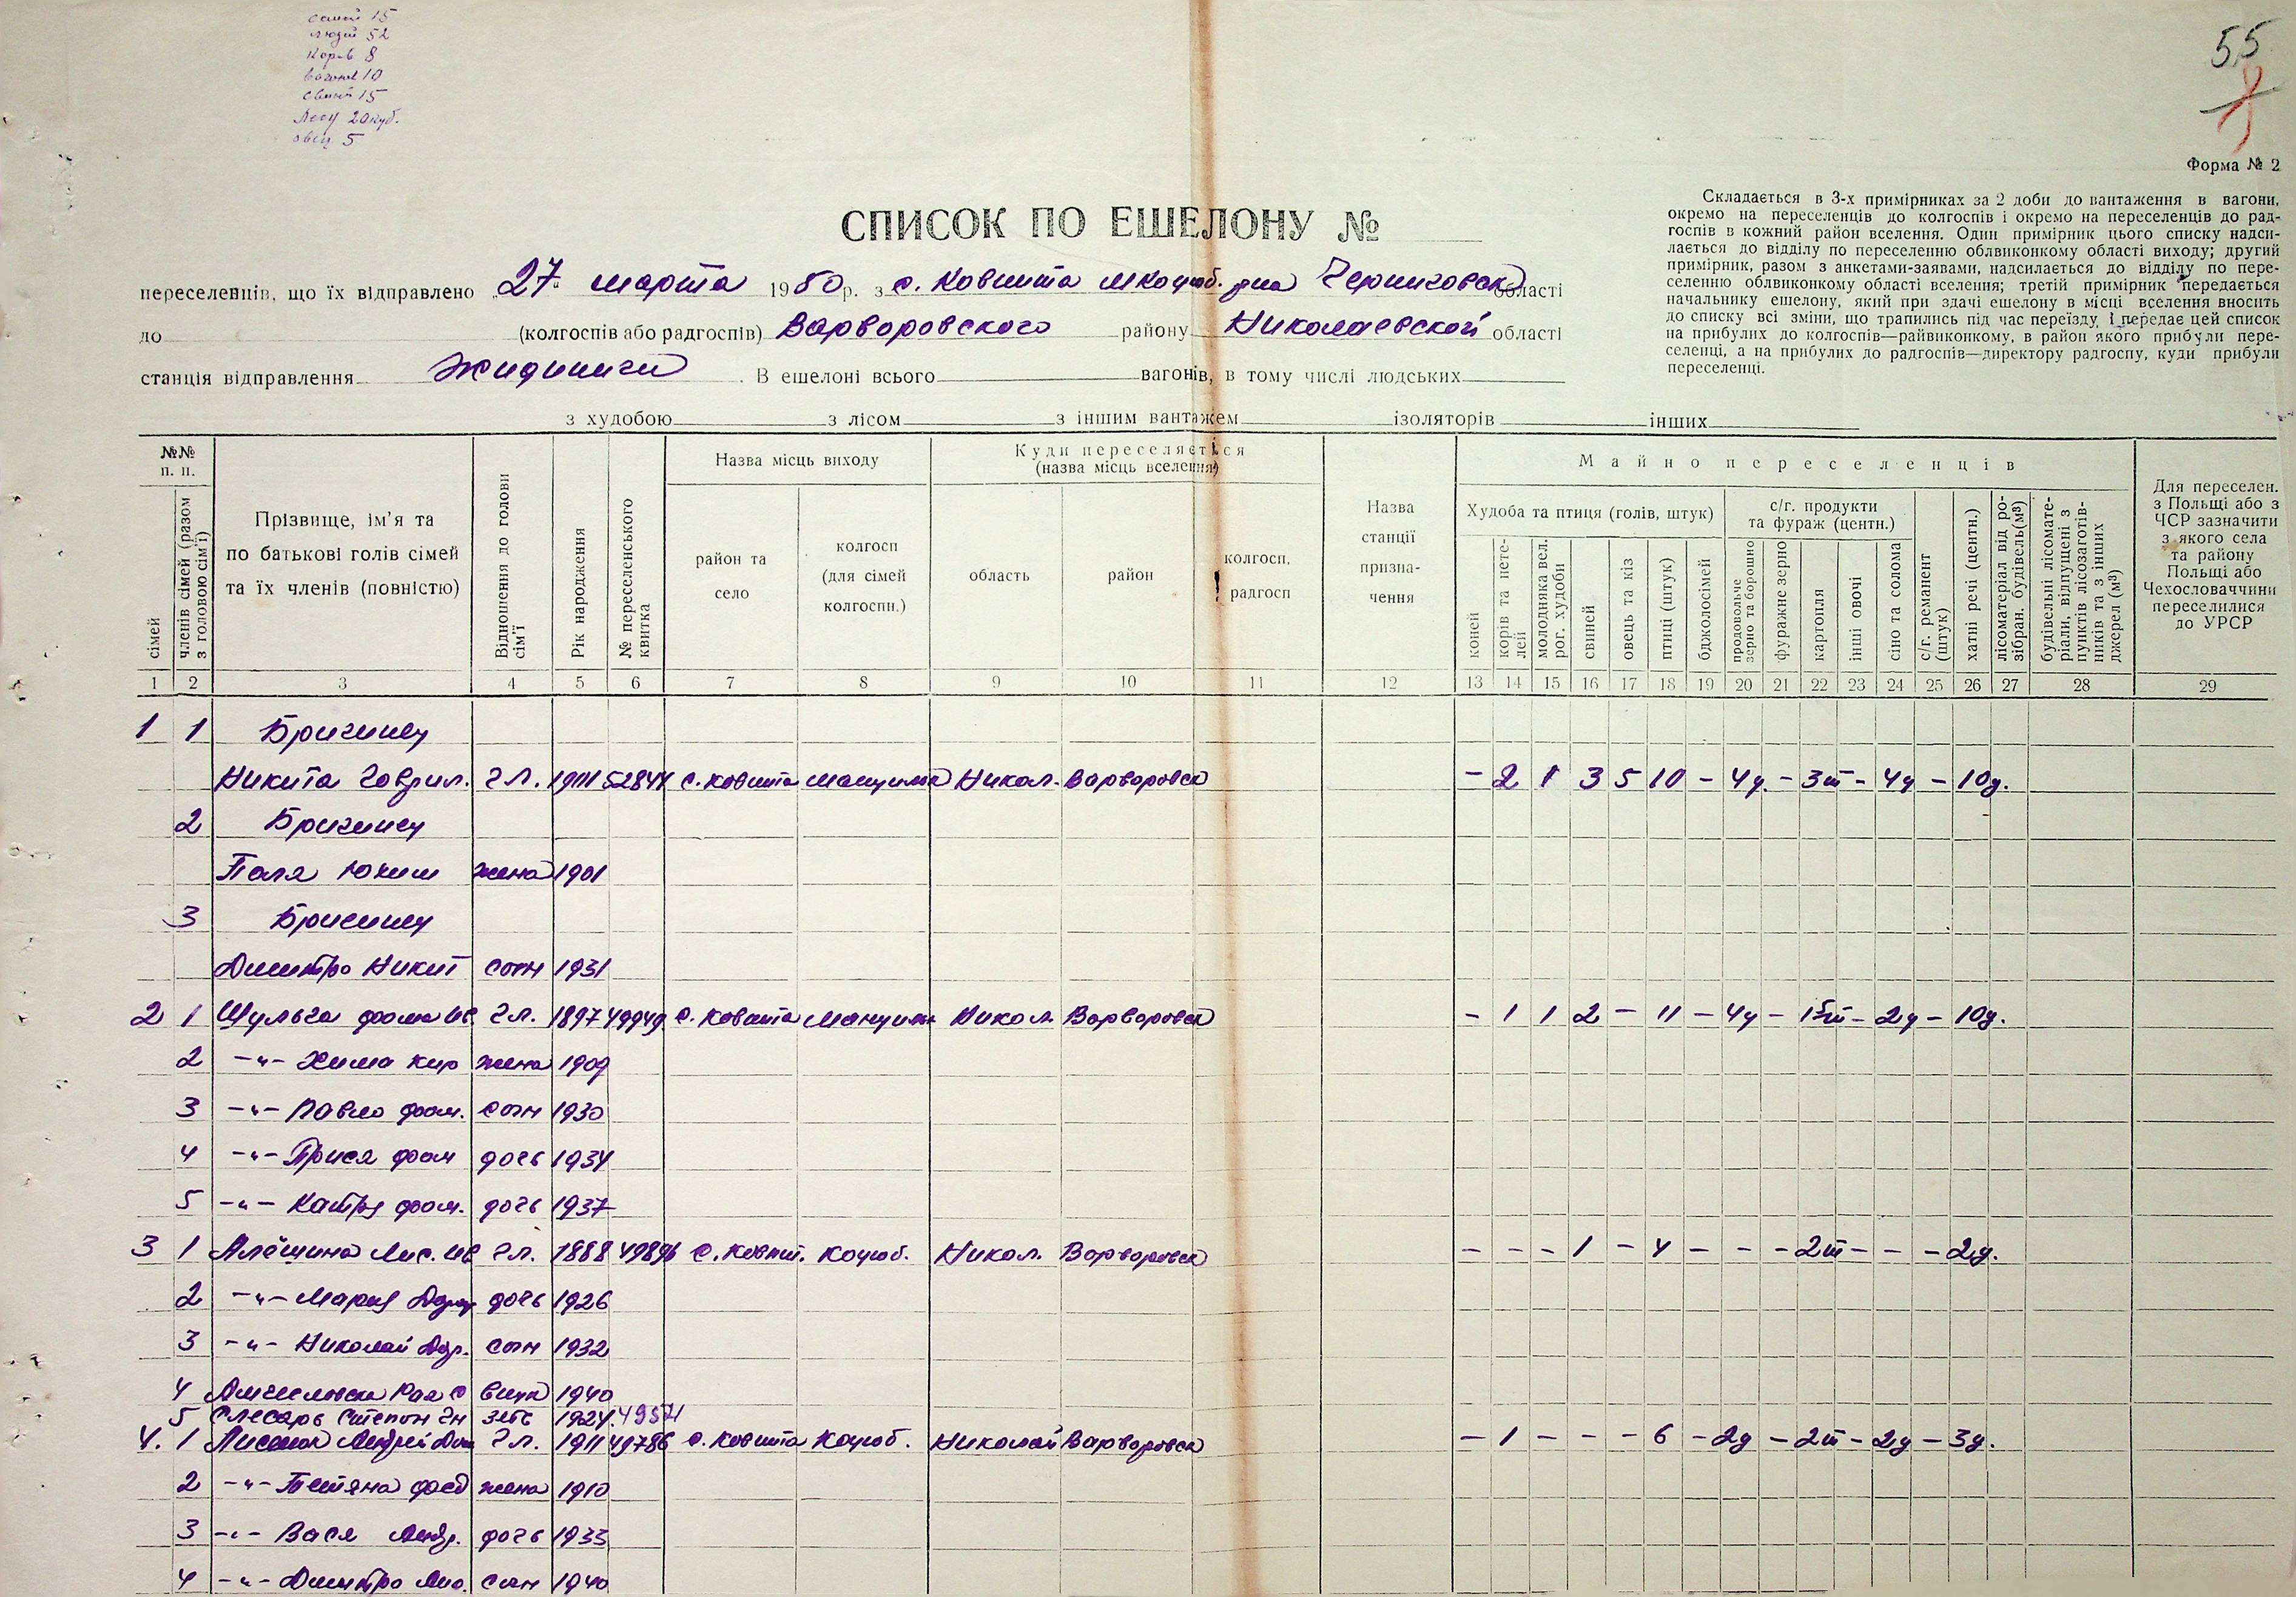 семей 15
людей 52
Коров 8
вагонов 10
свиней 15
Лесу 20 куб.
овец 5
55
Форма № 2
СПИСОК ПО ЕШЕЛОНУ №
Складається в 3-х примірниках за 2 доби до вантаження в вагони,
окремо на переселенців до колгоспів і окремо на переселенців до рад-
госпів в кожний район вселення. Один примірник цього списку надси-
лається до відділу по переселенню облвиконкому області виходу; другий
примірник, разом з анкетами-заявами, надсилається до відділу по пере-
селенню облвиконкому області вселення; третій примірник передається
начальнику ешелону, який при здачі ешелону в місці вселення вносить
до списку всі зміни, що трапились під час переїзду, і передає цей список
на прибулих до колгоспів—райвиконкому, в район якого прибули пере-
селенці, а на прибулих до радгоспів—директору радгоспу, куди прибули
переселенці.
переселенців, що їх відправлено „27“ марта 1950 р. з с. Ковпита МКоцюб. р-на Черниговск області
до (колгоспів або радгоспів) Варворовского району Николаевской області
станція відправлення Жидиничи. В ешелоні всього вагонів, в тому числі людських
з худобою з лісом з іншим вантажем ізоляторів інших
№№ п. п.
сімей
членів сімей (разом з головою сім'ї)
Прізвище, ім'я та по батькові голів сімей та їх членів (повністю)
Відношення до голови сім'ї
Рік народження
№ переселенського квитка
Назва місць виходу
район та село
колгосп (для сімей колгоспн.)
Куди переселяється (назва місць вселення)
область
район
колгосп, радгосп
Назва станції призна- чення
Майно переселенців
Худоба та птиця (голів, штук)
коней
корів та нете- лей
молодняка вел. рог. худоби
свиней
овець та кіз
птиці (штук)
бджолосімей
с/г. продукти та фураж (центн.)
продовольче зерно та борошно
фуражне зерно
картопля
інші овочі
сіно та солома
с/г. реманент (штук)
хатні речі (центн.)
лісоматеріал від ро- зібран. будівель (м³)
будівельні лісомате- ріали, відпущені з пунктів лісозаготів- ників та з інших джерел (м³)
Для переселен. з Польщі або з ЧСР зазначити з якого села та району Польщі або Чехословаччини переселилися до УРСР
1 2 3 4 5 6 7 8 9 10 11 12 13 14 15 16 17 18 19 20 21 22 23 24 25 26 27 28 29
1 1 Бригинец
Никита Гаврил. Гл. 1911 52844 с. Ковпита Никол. Варваровск - 2 1 3 5 10 - 4ц. - 3т - 4ц - 10ц.
2 Бригинец
Паля Юхим жена 1901
3 Бригинец
Димитро Никит сын 1931
2 1 Шульга Фома Ив Гл. 1897 49949 с. Ковпита Никол Варваровск - 1 1 2 - 11 - 4ц - 15т - 2ц - 10ц.
2 -"- Хима Кир жена 1909
3 -"- Павло Фом. сын 1930
4 -"- Прися Фом дочь 1934
5 -"- Катря Фом. дочь 1937
3 1 Алёшина Лис. Ив Гл. 1888 49896 с. Ковпит. Коцюб. Никол. Варваровск - - - 1 - 4 - - - 2т - - - 2ц.
2 -"- Мария дочь 1926
3 -"- Николай сын 1932
4 Рая внук 1940
5 Слесарь Степан зять 1924 4957
4. 1 Андрей Гл. 1911 49786 с. Ковпита Коцюб. Николай Варваровск - 1 - - - 6 - 2ц - 2т - 2ц - 3ц.
2 -"- Тетяна Фед жена 1910
3 -"- Вася Андр. дочь 1933
4 -"- Димитро сын 1940